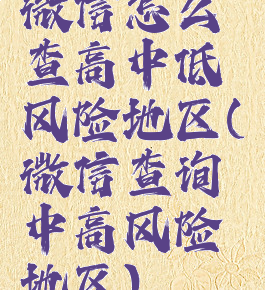 微信怎么
查高中低
风险地区(
微信查询
中高风险
地区)